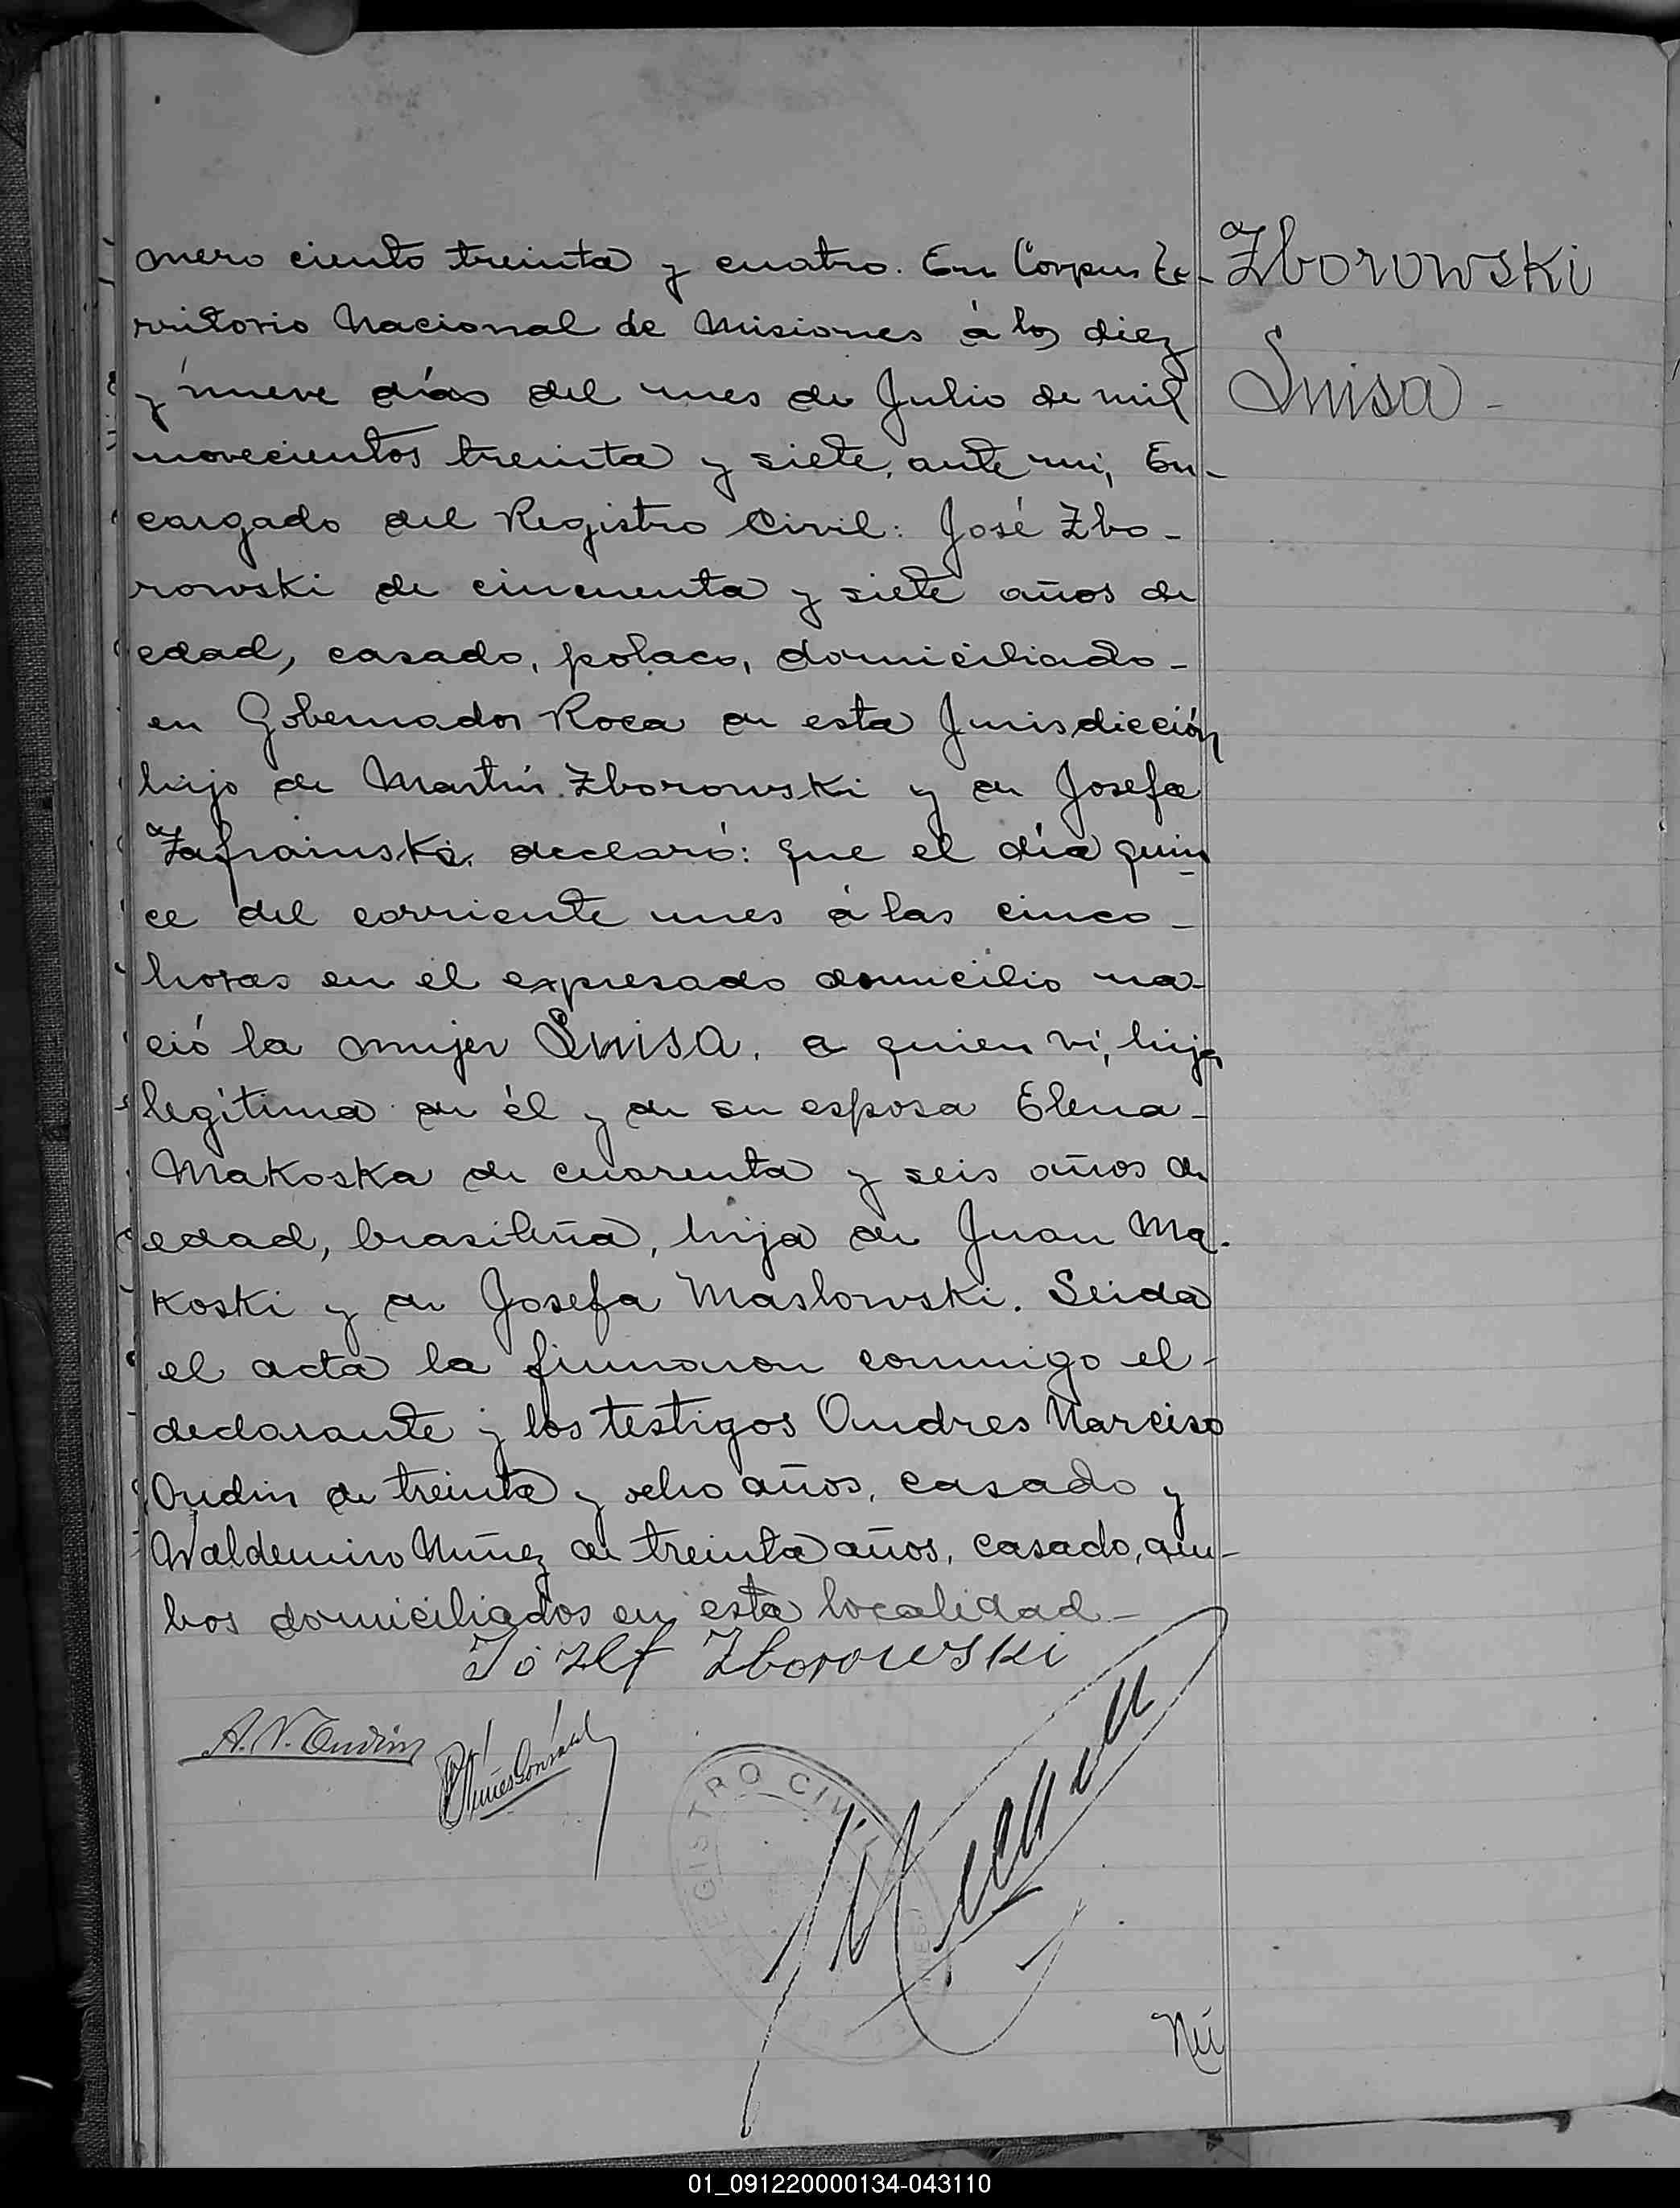 mero ciento treinta y cuatro. En Corpus Te-
rritorio Nacional de Misiones á los diez
y nueve días del mes de Julio de mil
novecientos treinta y siete, ante mi, En-
cargado del Registro Civil: José Zbo-
rowski de cincuenta y siete años de
edad, casado, polaco, domiciliado-
en Gobernador Roca de esta Jurisdicción
hijo de Martín Zborowski y de Josefa
declaró: que el día quin
ce del corriente mes á las cinco-
horas en el expresado domicilio na-
ció la mujer Luisa, a quien ví, hija
legítima de él y de su esposa Elena-
Makoska de cuarenta y seis años de
edad, brasileña, hija de Juan Ma-
koski y de Josefa Maslowski. Leida
el acta la firmaron conmigo el-
declarante y los testigos Andres Narciso
Oudin de treinta y ocho años, casado y
Waldemiro Nuñez de treinta años, casado, am-
bos domiciliados en esta localidad-
Józef Zborowski
A. N. Oudin
REGISTRO CIVIL
Nú
Zborowski
Luisa-
01_091220000134-043110